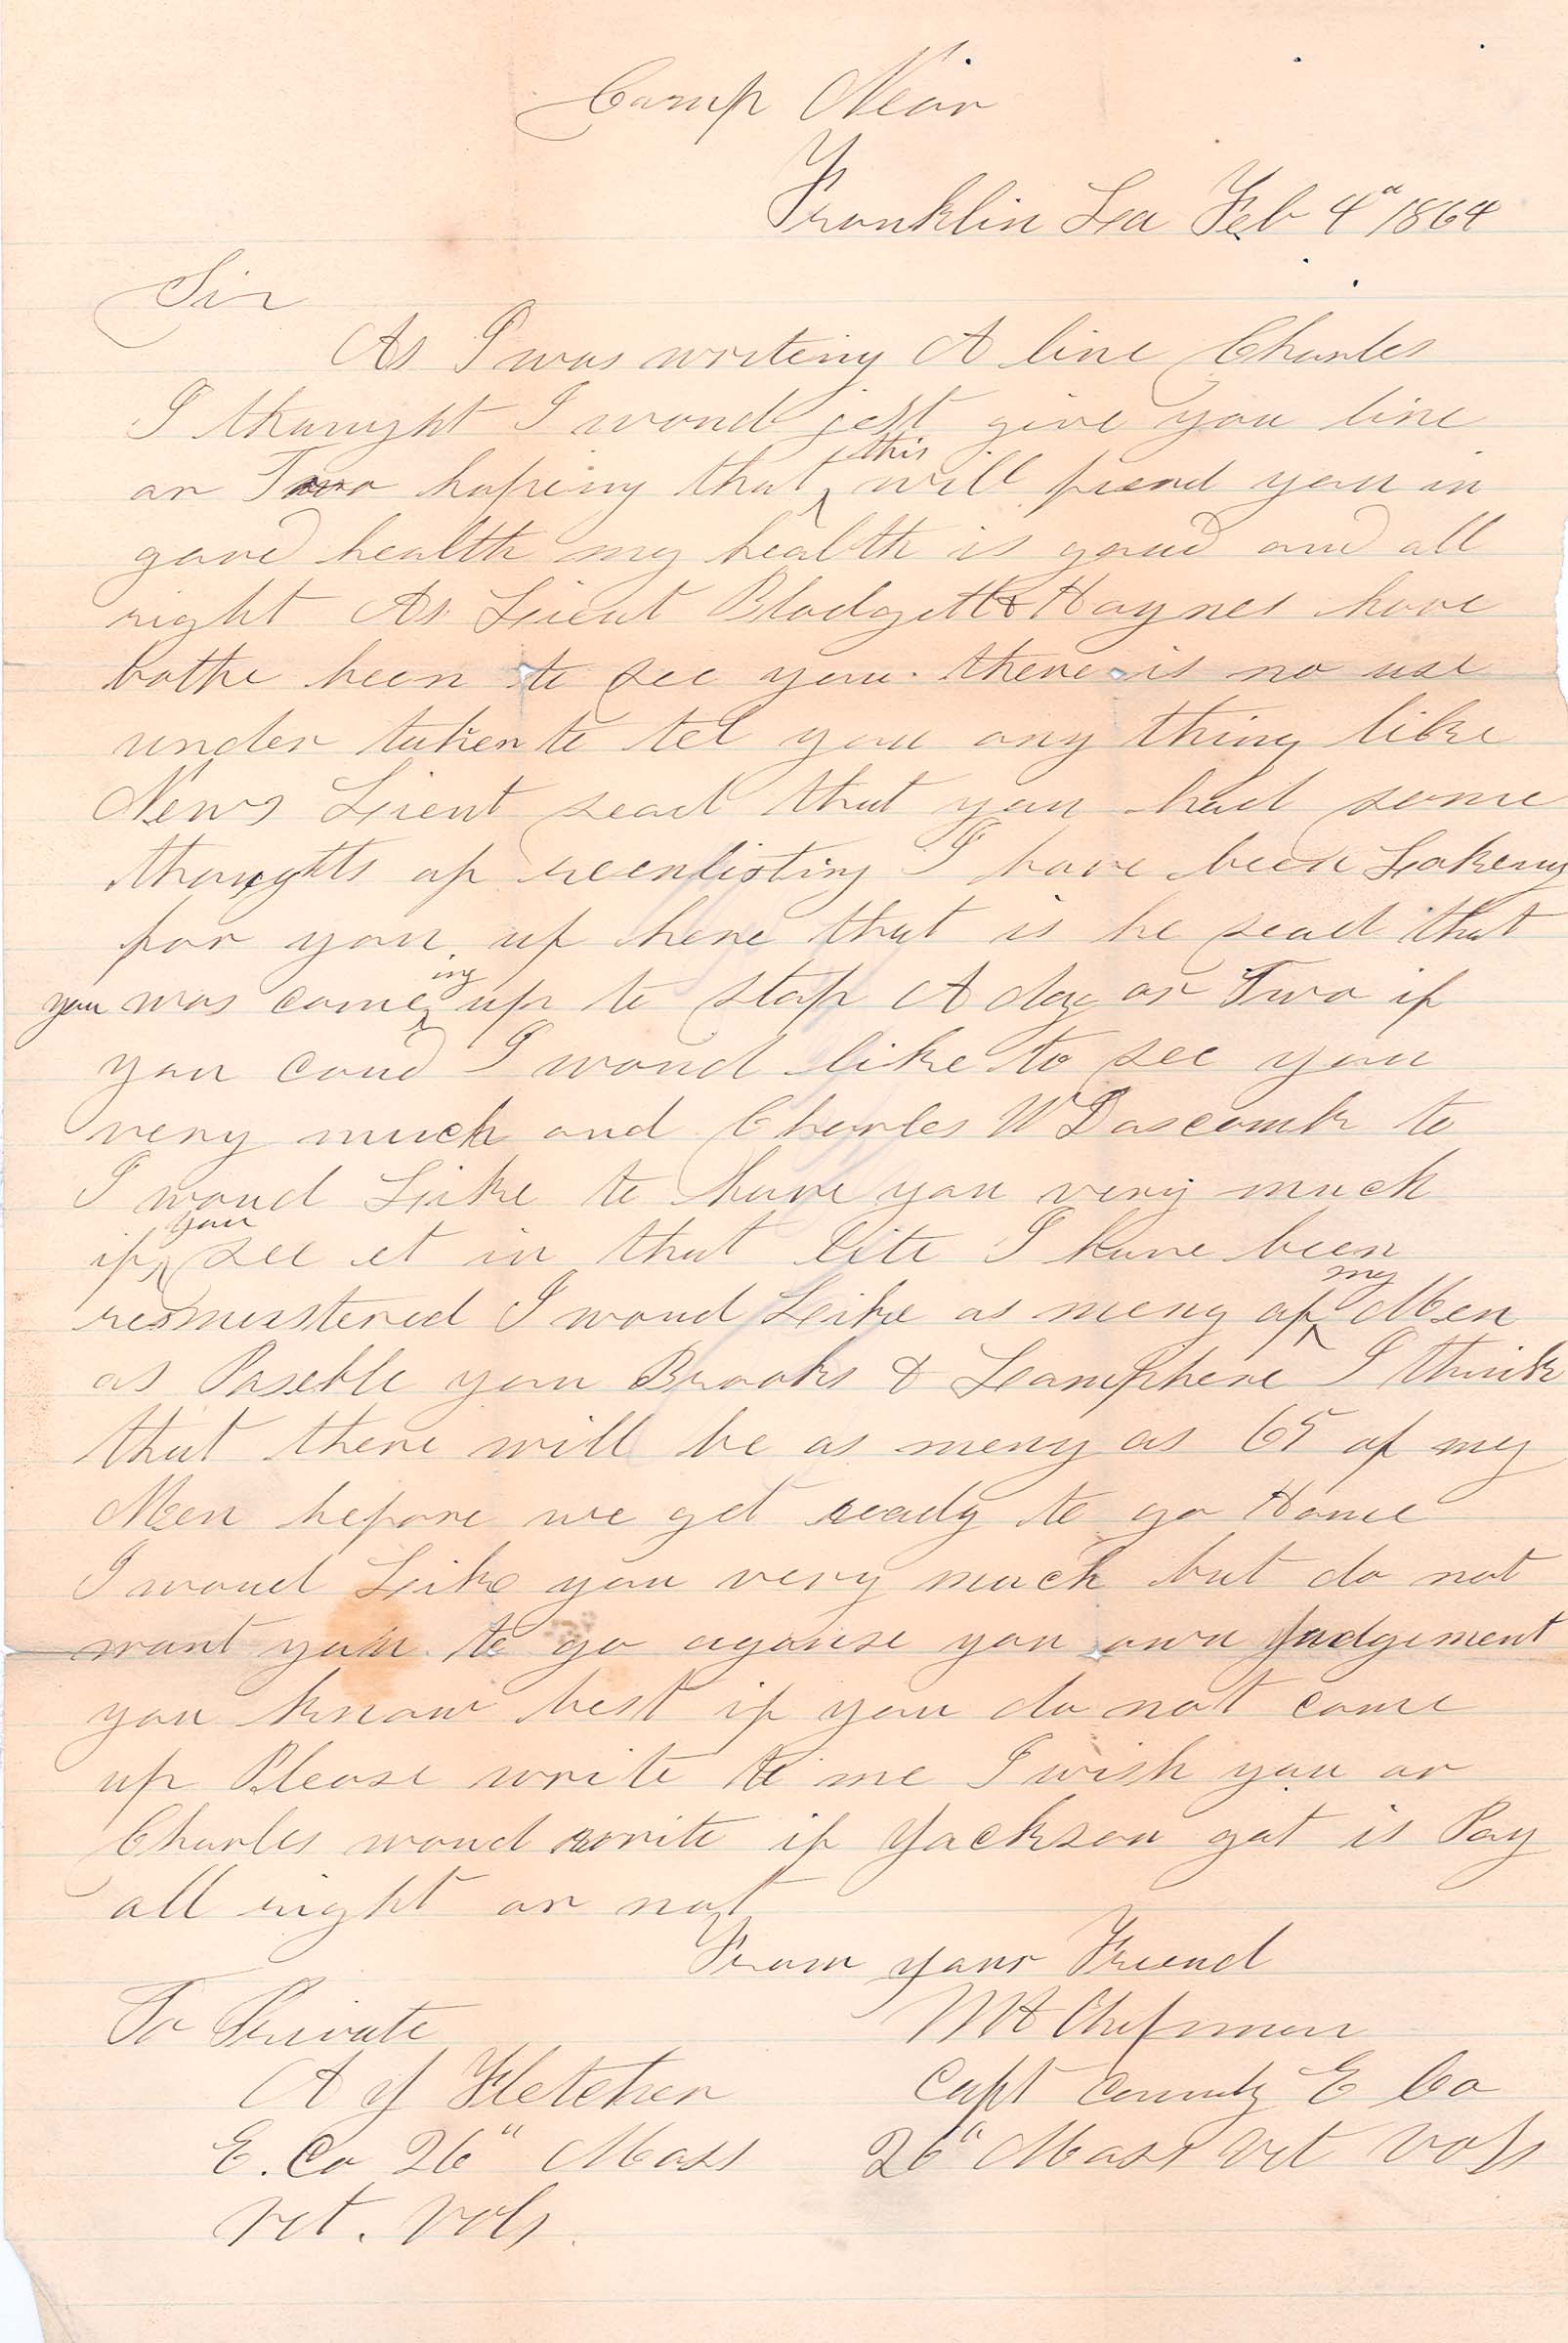 Camp Near
Franklin La Feb 4" 1864
Sir
As I was writeing A line Charles
I thaught I woud jest give you line
or Two hopeing that this will fiend you in
goud health my health is goud and all
right As Lieut Blodgett & Haynes have
bothe been to see you. there is no use
under taken to tel you any thing like
News Lieut sead that you had some
thoughts of reenlisting I have been Lokeing
for you up here that is he sead that
you was comeing up to stop A day or Two if
you coud I woud like to see you
very much and Charles W Dascomb to
I woud Like to have you very much
if you see it in that lite I have been
remusstered I woud Like as meny of my Men
as Paseble you Brooks & Lamphere I think
that there will be as meny as 65 of my
Men before we get ready to go Home
I woud Like you very much but do not
want you to go aganse you own Judgement
you know best if you do not come
up Please write to me I wish you or
Charles woud write if Jackson got is Pay
all right or not
From your Friend
To Private W H Chapman
A J Fletcher Capt Comndg E Co
E. Co 26" Mass 26" Mass Vet Vols
Vet. Vols.